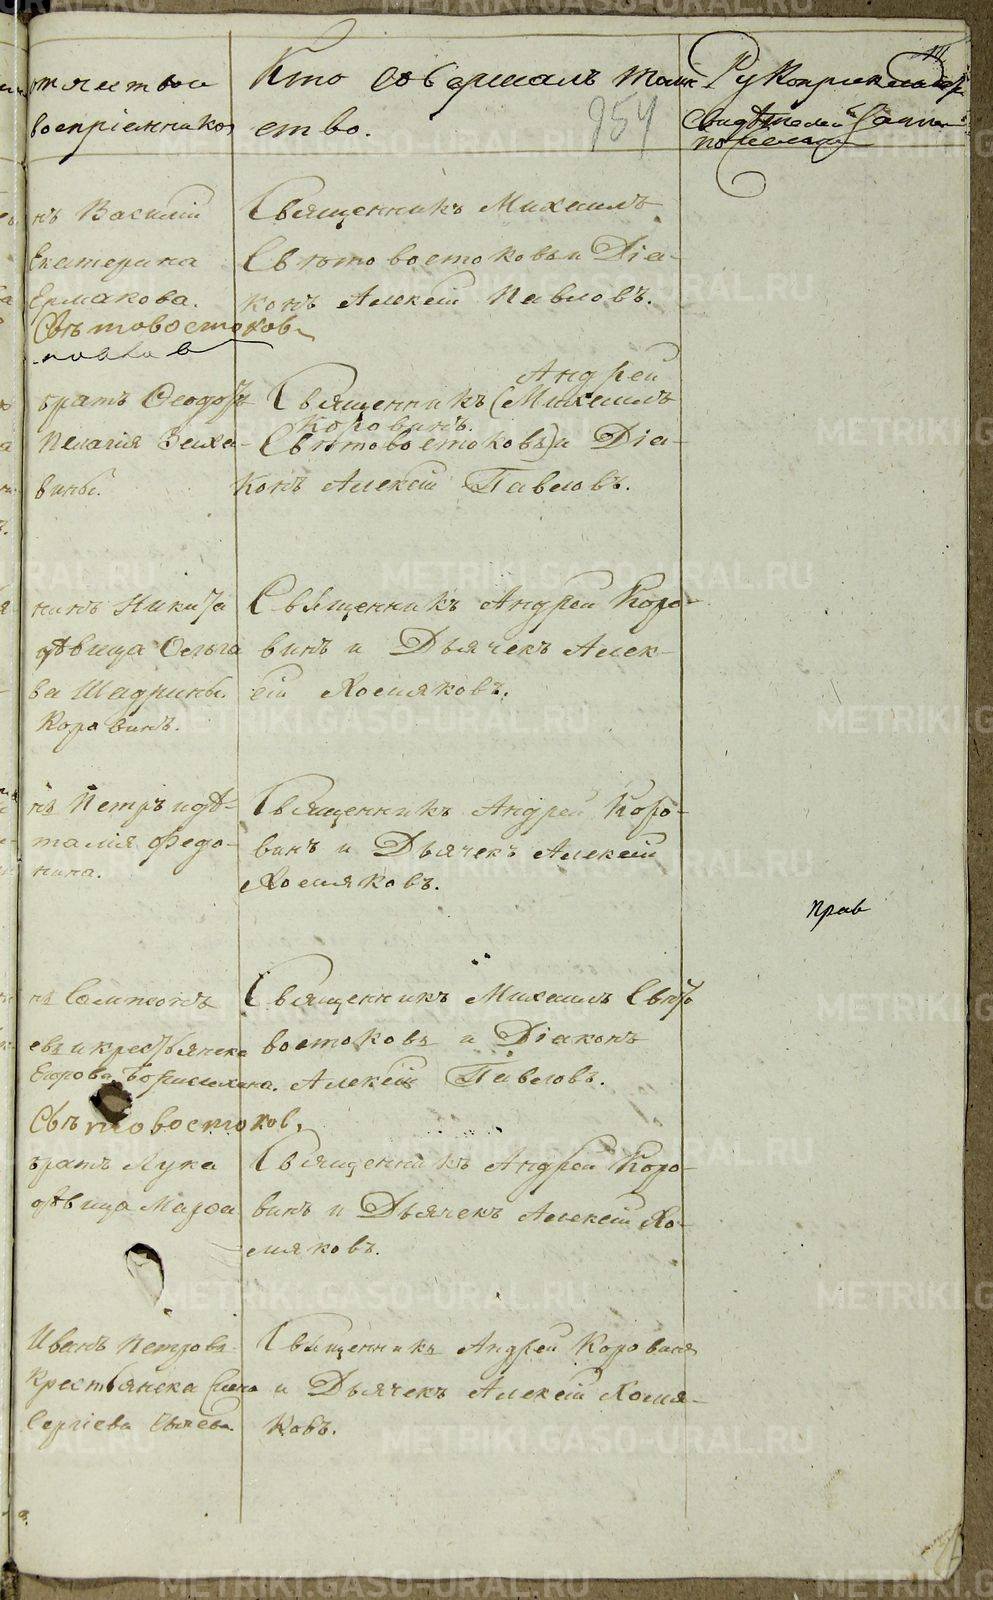 отчество и
воспріемников
Кто совершалъ таин
ство.
954
Рукоприкладст
свидѣтелей
нъ Василій
Екатерина
Ермакова.
Свѣтовостоков
Священникъ Михаилъ
Свѣтовостоковъ и Діа-
конъ Алексій Павловъ.
братъ Ѳеодоръ
Пелагія
вины.
Андрей
Священникъ (Михаилъ
Коровинъ.
Свѣтовостоковъ) и Діа-
конъ Алексій Павловъ.
нинъ Никита
дѣвица Ольга
ва Шадрины.
Коровинъ.
Священникъ Андрей Коро-
винъ и Дьячекъ Алек-
сій Хомяковъ.
нъ Петръ и дѣ-
талія Федо-
нина.
Священникъ Андрей Коро-
винъ и Дьячекъ Алексій
Хомяковъ.
прав
нъ Сампсонъ
евъ и крестьянска
Егорова
Свѣтовостоков,
Священникъ Михаилъ Свѣто
востоковъ и Діаконъ
Алексій Павловъ.
братъ Лука
дѣвица Марѳа
Священникъ Андрей Коро-
винъ и Дьячекъ Алексій Хо-
мяковъ.
Иванъ Петровъ
Крестьянска
Сергіева
Священникъ Андрей Коровинъ
и Дьячекъ Алексій Хомя-
ковъ.
METRIKI.GASO-URAL.RU